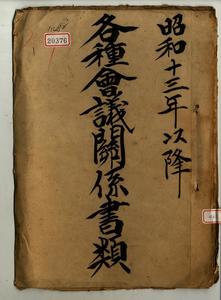 昭和十三年以降
各種會議關係書類
20376